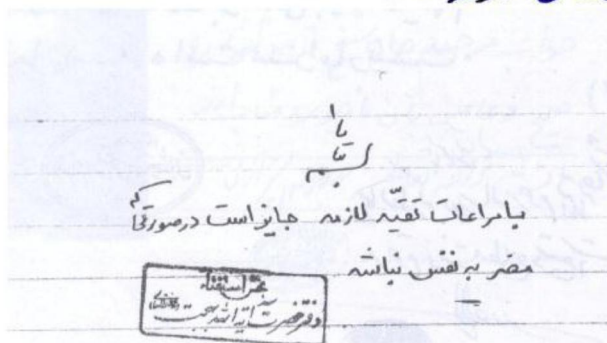 بسمه تعالی
با مراعات تقیّه لازمه جایز است درصورتی که
مضر به نفس نباشد
دفتر حضرت آیة الله بهجت